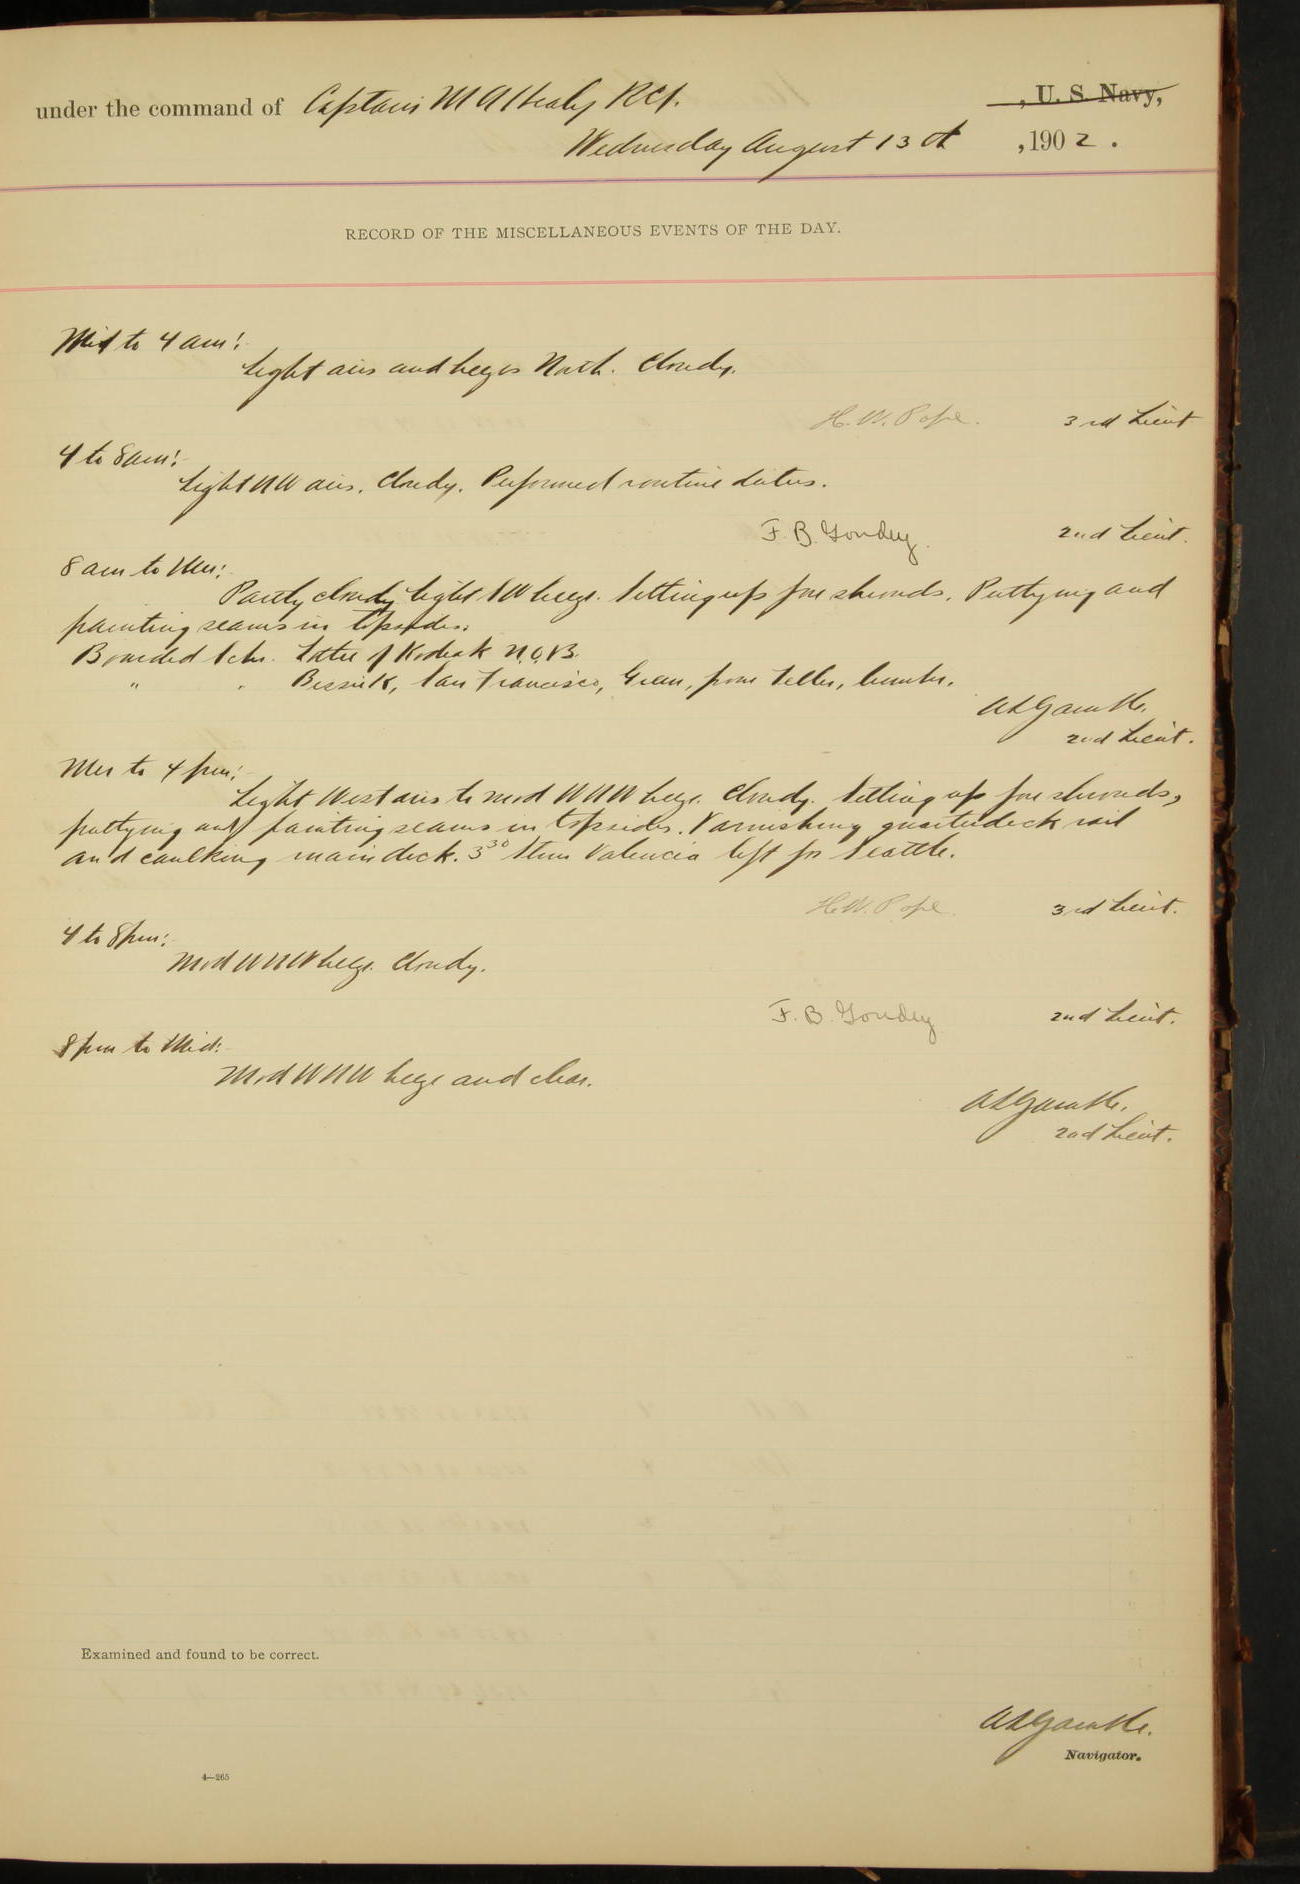 under the command of Captain M A Healy RCS. , U. S. Navy,
Wednesday August 13th , 1902.
RECORD OF THE MISCELLANEOUS EVENTS OF THE DAY.
Mid to 4 am:
Light airs and breezes North. Cloudy.
H. W. Pope. 3rd Lieut
4 to 8 am:
Light NW airs. Cloudy. Performed routine duties.
F. B. Goudey. 2nd Lieut.
8 am to Mer:
Partly cloudy light SW breeze. Setting up fore shrouds. Puttying and
painting seams in topsides.
Boarded Schr. of Kodiak N.O.B.
" " San Francisco, from Teller, lumber.
A L Gamble.
2nd Lieut.
Mer to 4 pm:
Light West airs to mod WNW breeze. Cloudy. Setting up fore shrouds,
puttying and painting seams in topsides. Varnishing quarterdeck rail
and caulking main deck. 3 30 Stmr Valencia left for Seattle.
H. W. Pope. 3rd Lieut.
4 to 8 pm:
Mod WNW breeze. Cloudy.
F. B. Goudey 2nd Lieut.
8 pm to Mid:
Mod WNW breeze and clear.
A L Gamble.
2nd Lieut.
Examined and found to be correct.
A L Gamble.
Navigator.
4—265